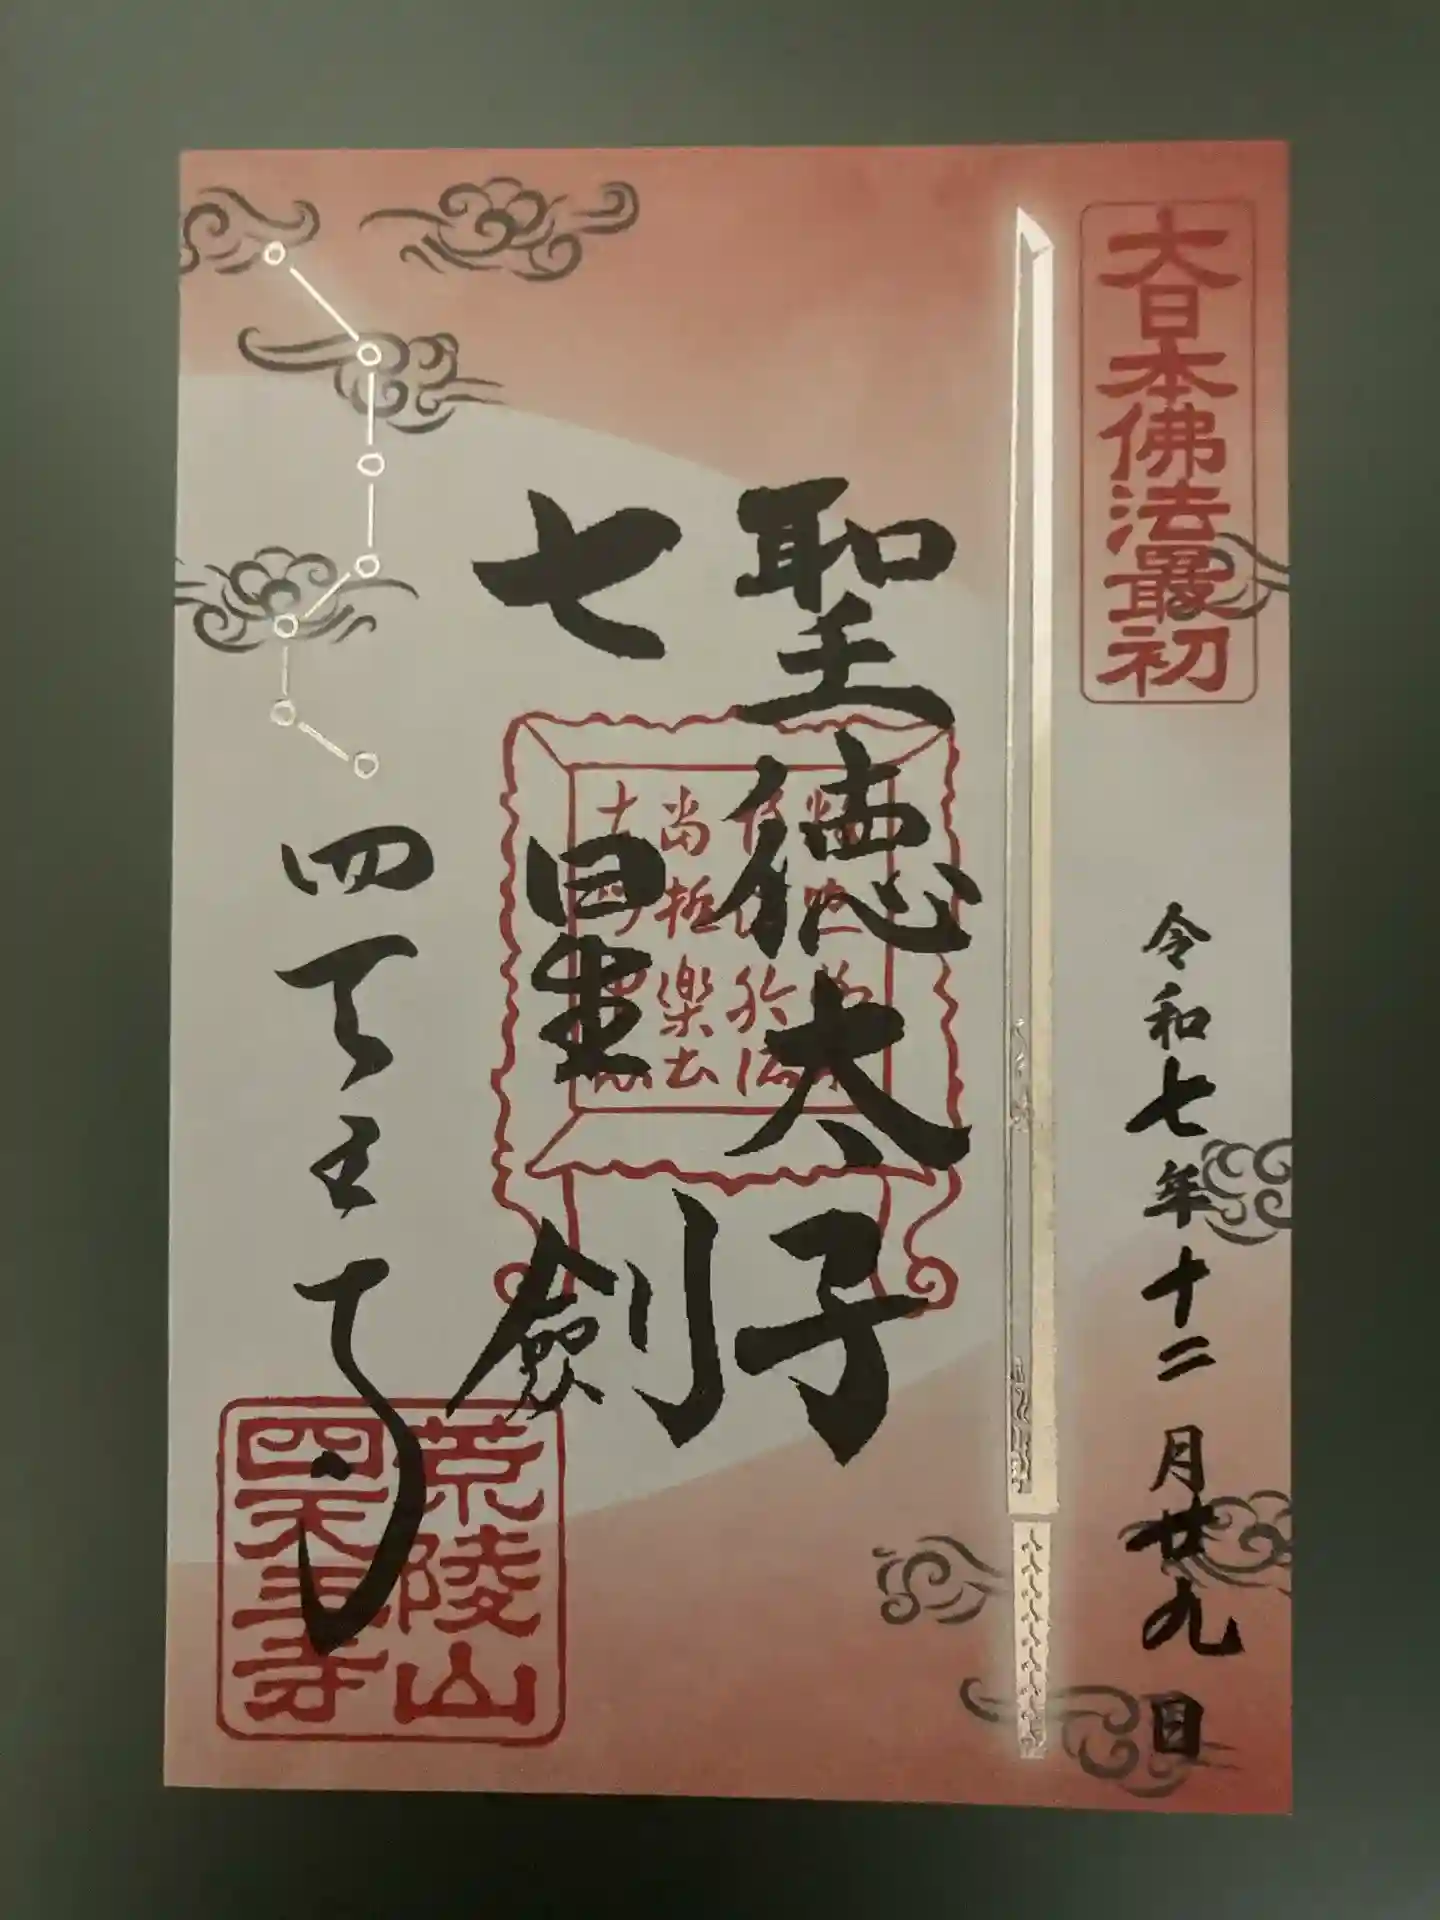 大日本佛法最初
令和七年十二月廿九日
聖徳太子
七星剣
四天王寺
荒陵山
四天王寺